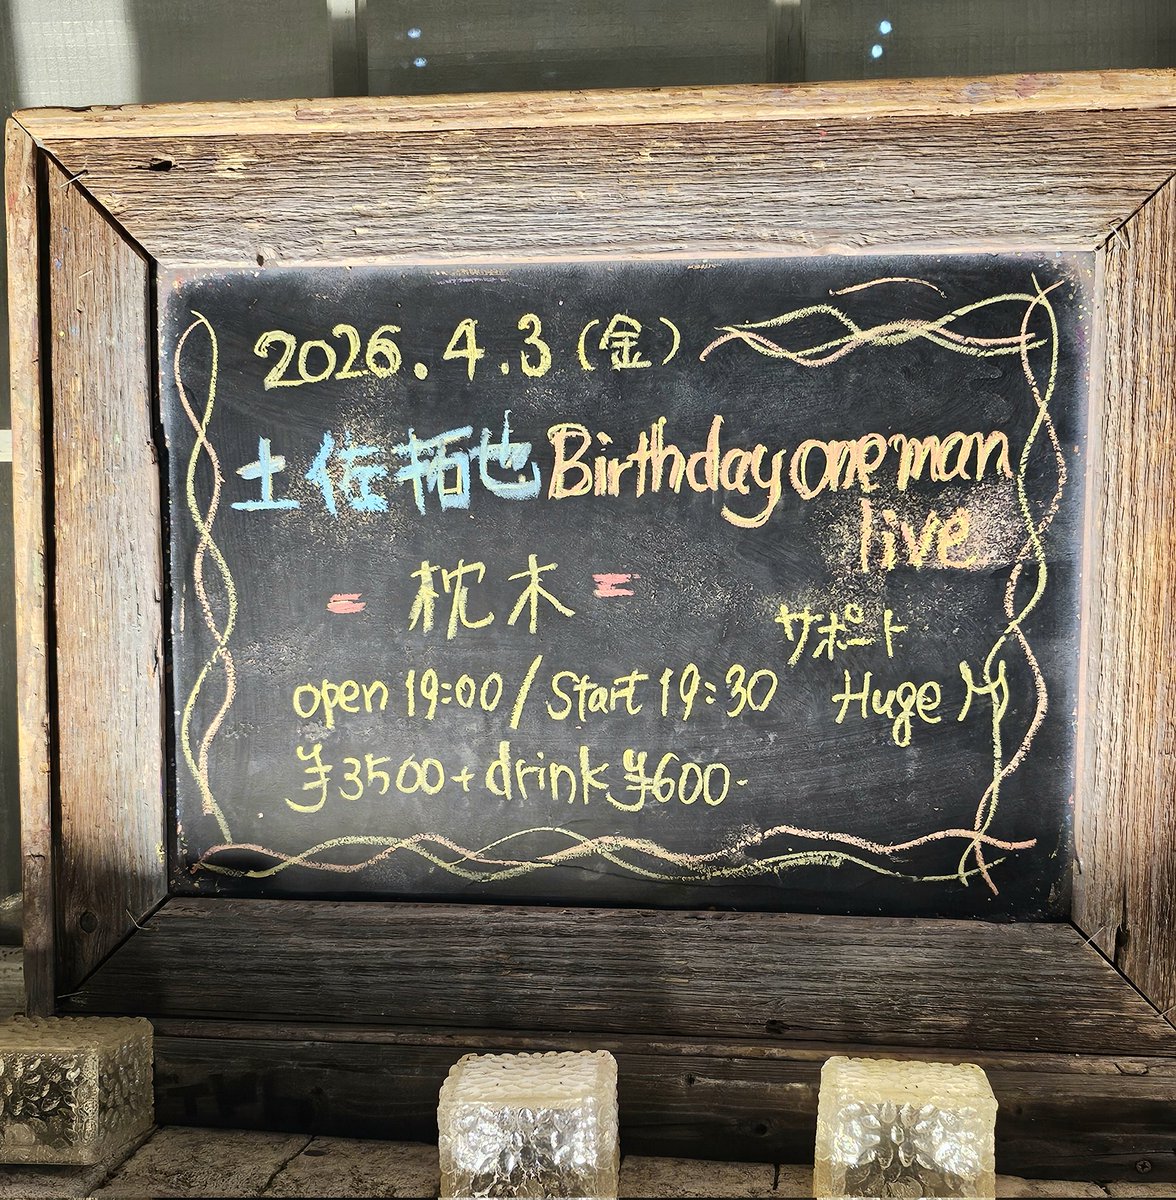 2026.4.3(金)
土佐拓也Birthday one man
live
= 枕木 =
サポート
Huge M
open 19:00/Start 19:30
¥3500+drink¥600-